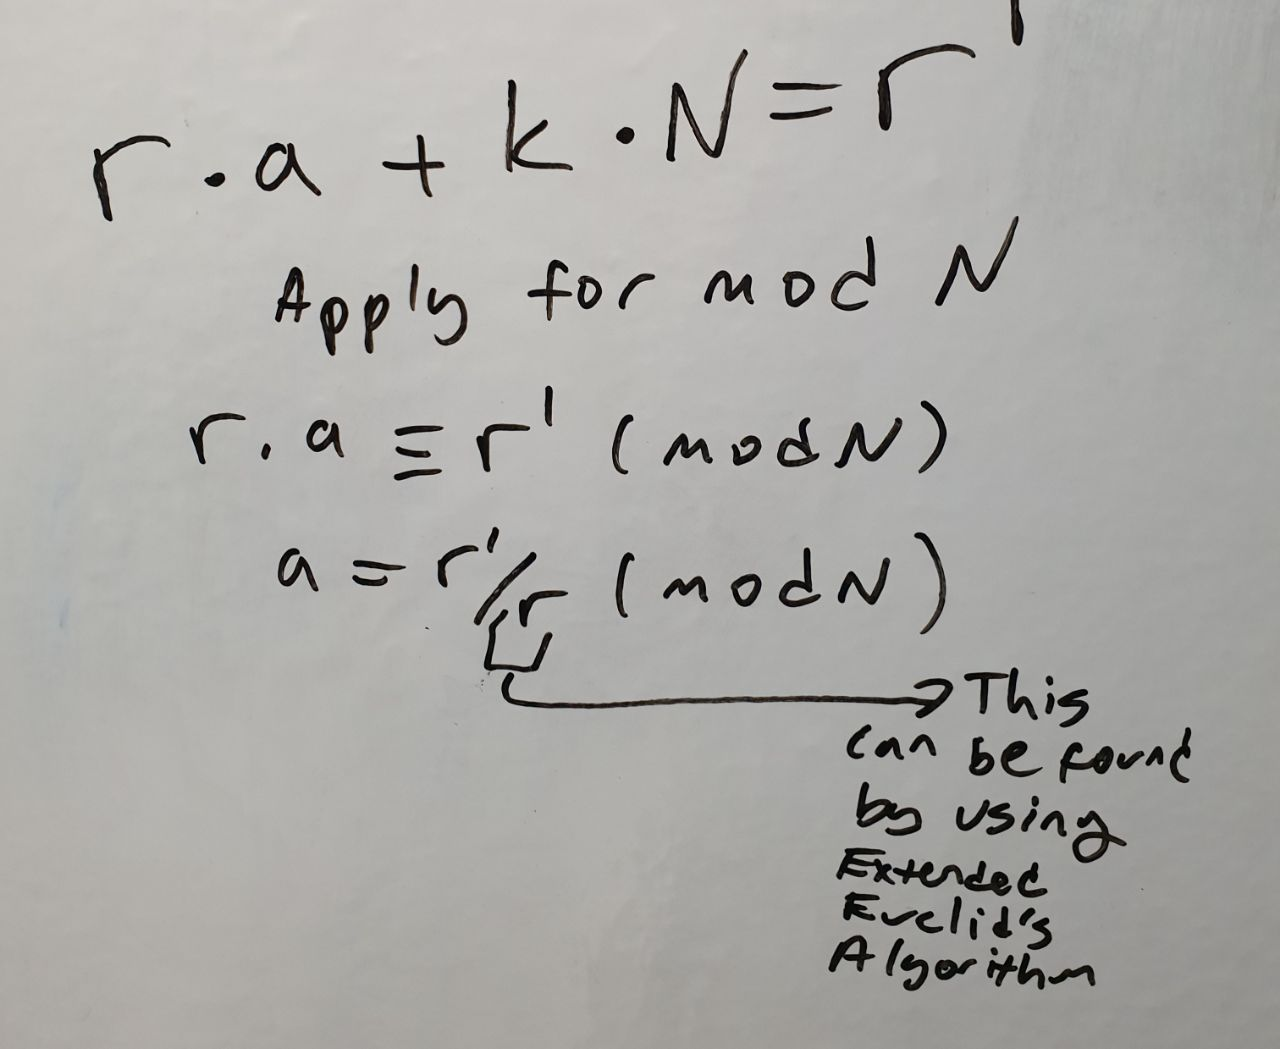 r · a + k · N = r'
Apply for mod N
r . a ≡ r' (mod N)
a = r'/r (mod N)
This
can be found
by using
Extended
Euclid's
Algorithm